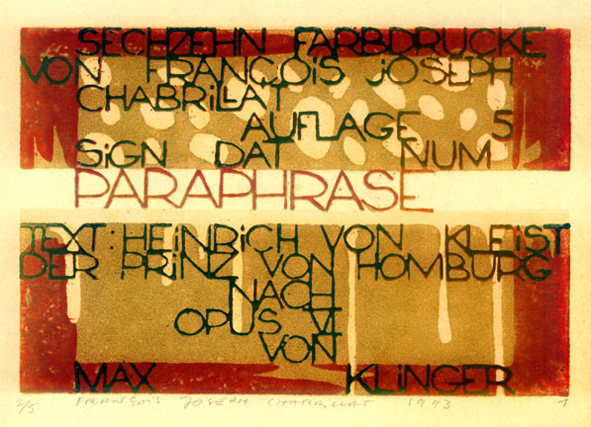 SECHZEHN FARBDRUCKE
VON FRANÇOiS JOSEPH
CHABRiLLAT
AUFLAGE 5
SiGN DAT NUM
PARAPHRASE
TEXT: HEiNRiCH VON KLEiST
DER PRiNZ VON HOMBURG
NACH
OPUS VI
VON
MAX KLiNGER
2/5 FRANÇOIS JOSEPH CHABRILLAT 1993 1